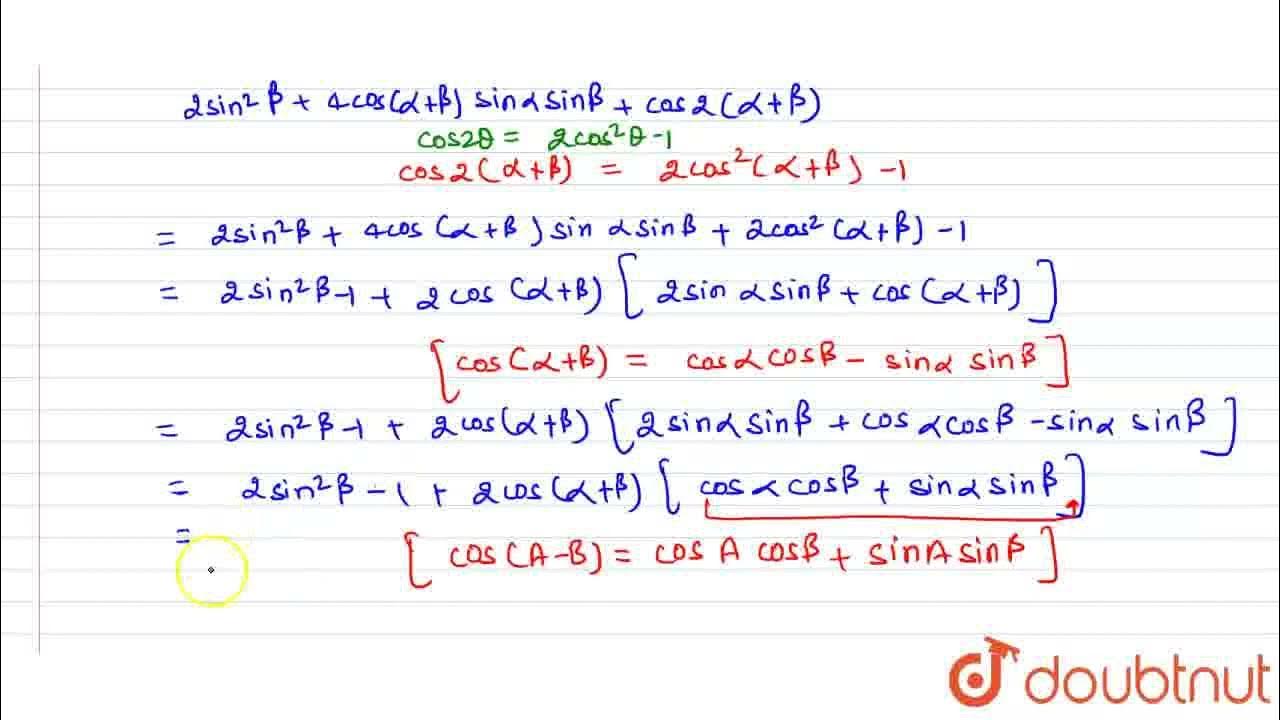 2sin²β + 4cos(α+β) sinα sinβ + cos2(α+β)
cos2θ = 2cos²θ -1
cos2(α+β) = 2cos²(α+β) -1
= 2sin²β + 4cos(α+β) sin α sinβ + 2cos²(α+β) -1
= 2sin²β -1 + 2cos(α+β) [2sin α sinβ + cos(α+β)]
[cos(α+β) = cosα cosβ - sinα sinβ]
= 2sin²β -1 + 2cos(α+β) [2sinα sinβ + cosα cosβ - sinα sinβ]
= 2sin²β -1 + 2cos(α+β) [cosα cosβ + sinα sinβ]
=
[cos(A-B) = cos A cosβ + sinA sinβ]
doubtnut